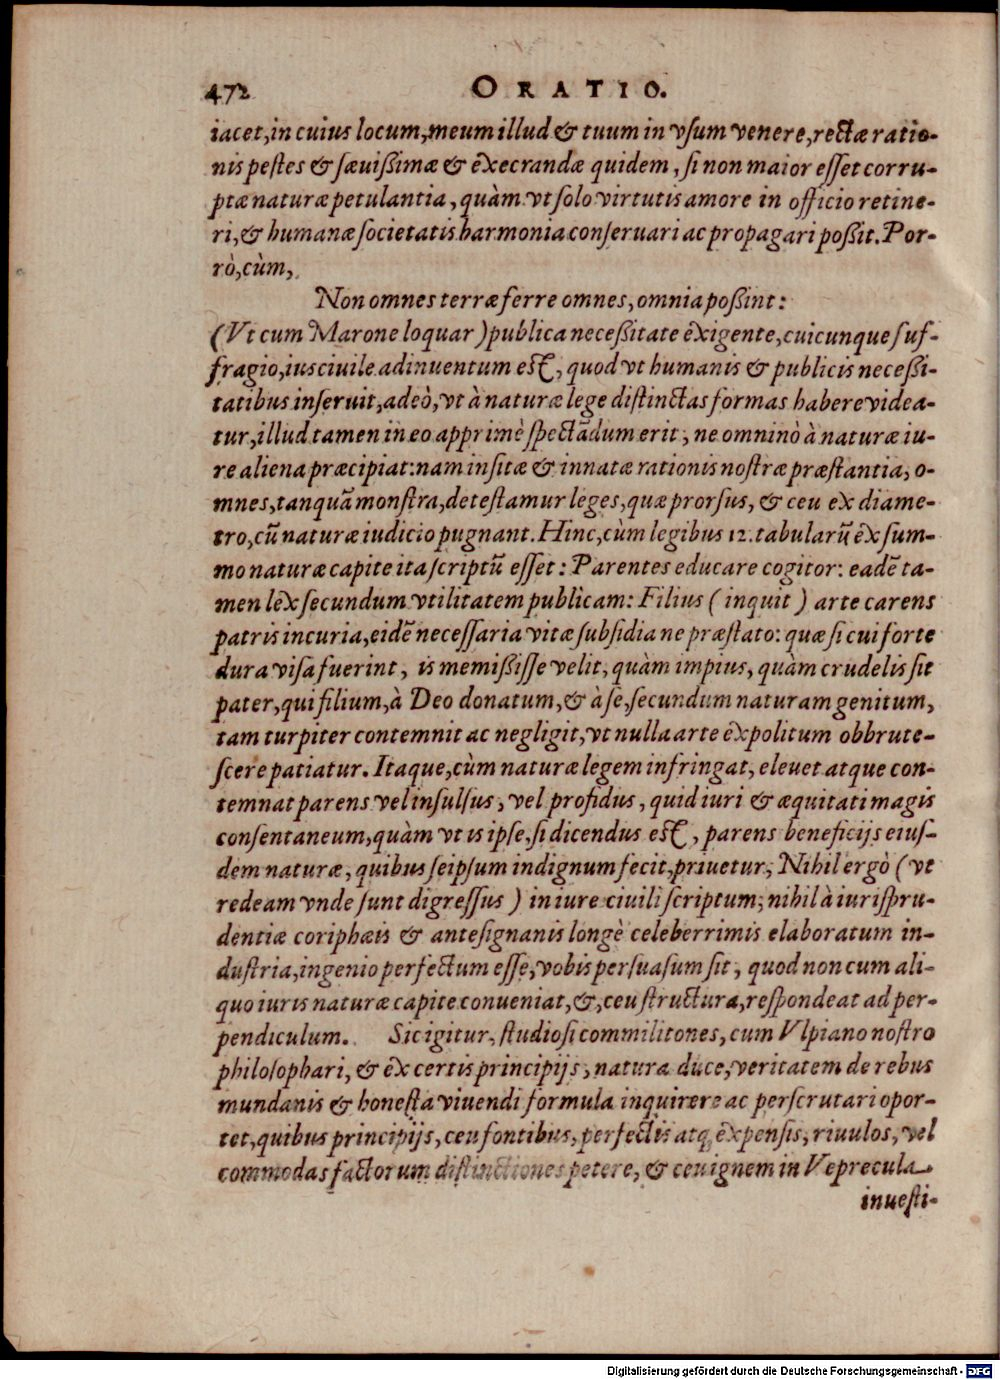 472 ORATIO.
iacet, in cuius locum, meum illud & tuum in vsum venere, rectæ ratio-
nis pestes & sæuißimæ & execrandæ quidem, si non maior esset corru-
ptæ naturæ petulantia, quàm vt solo virtutis amore in officio retine-
ri, & humanæ societatis harmonia conseruari ac propagari poßit. Por-
rò, cùm,
Non omnes terræ ferre omnes, omnia poßint:
(Vt cum Marone loquar) publica neceßitate exigente, cuicunque suf-
fragio, ius ciuile adinuentum est, quod vt humanis & publicis neceßi-
tatibus inseruit, adeò, vt à naturæ lege distinctas formas habere videa-
tur, illud tamen in eo apprimè spectãdum erit, ne omninò à naturæ iu-
re aliena præcipiat: nam insitæ & innatæ rationis nostræ præstantia, o-
mnes, tanquã monstra, detestamur leges, quæ prorsus, & ceu ex diame-
tro, cũ naturæ iudicio pugnant. Hinc, cùm legibus 12. tabularũ ex sum-
mo naturæ capite ita scriptũ esset: Parentes educare cogitor: eadẽ ta-
men lex secundum vtilitatem publicam: Filius (inquit) arte carens
patris incuria, eidẽ necessaria vitæ subsidia ne præstato: quæ si cui forte
dura visa fuerint, is memißisse velit, quàm impius, quàm crudelis sit
pater, qui filium, à Deo donatum, & à se, secundum naturam genitum,
tam turpiter contemnit ac negligit, vt nulla arte expolitum obbrute-
scere patiatur. Itaque, cùm naturæ legem infringat, eleuet atque con-
temnat parens vel insulsus, vel profidus, quid iuri & æquitati magis
consentaneum, quàm vt is ipse, si dicendus est, parens beneficijs eius-
dem naturæ, quibus seipsum indignum fecit, priuetur, Nihil ergò (vt
redeam vnde sunt digressus) in iure ciuili scriptum, nihil à iurispru-
dentiæ coriphæis & antesignanis longè celeberrimis elaboratum in-
dustria, ingenio perfectum esse, vobis persuasum sit, quod non cum ali-
quo iuris naturæ capite conueniat, &, ceu structura, respondeat ad per-
pendiculum. Sic igitur, studiosi commilitones, cum Vlpiano nostro
philosophari, & ex certis principijs, natura duce, veritatem de rebus
mundanis & honesta viuendi formula inquirere ac perscrutari opor-
tet, quibus principijs, ceu fontibus, perfectis atq; expensis, riuulos, vel
commodas factorum distinctiones petere, & ceu ignem in Veprecula
inuesti-
Digitalisierung gefördert durch die Deutsche Forschungsgemeinschaft - DFG